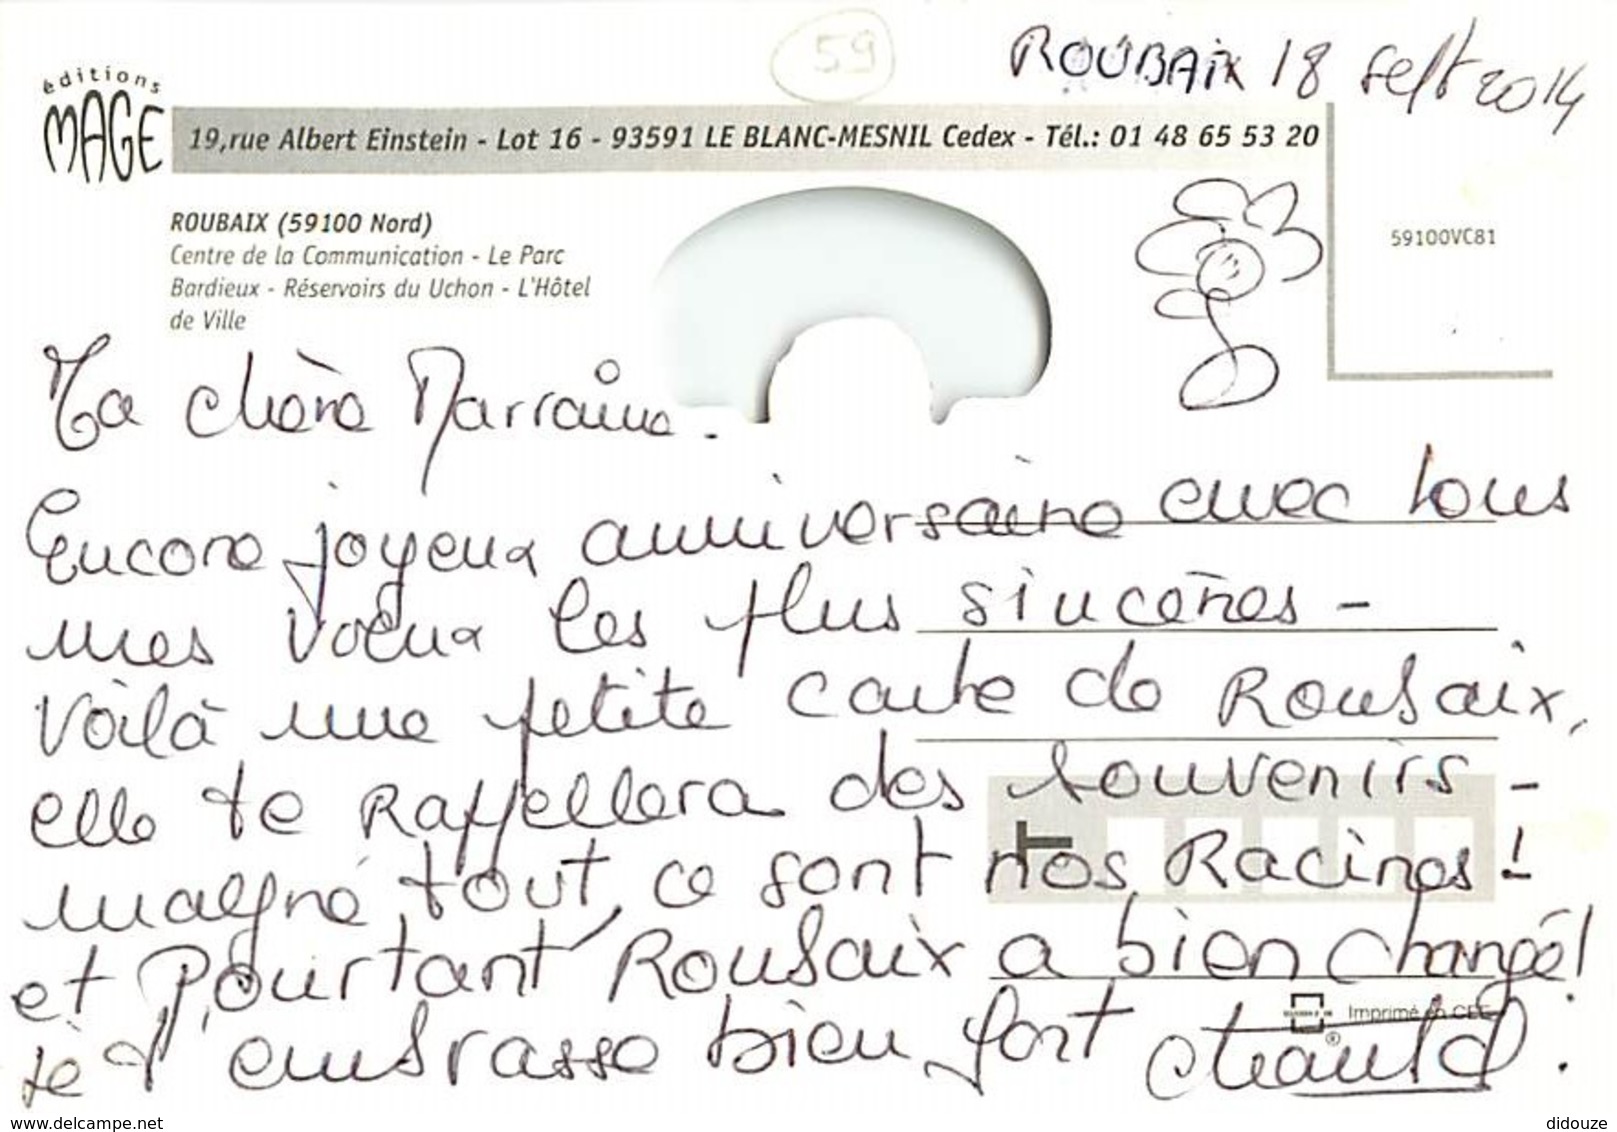 59
ROUBAIX 18 sept 2014
éditions
MAGE
19,rue Albert Einstein - Lot 16 - 93591 LE BLANC-MESNIL Cedex - Tél.: 01 48 65 53 20
ROUBAIX (59100 Nord)
Centre de la Communication - Le Parc
Bardieux - Réservoirs du Uchon - L'Hôtel
de Ville
59100VC81
Ma chère Marraine.
Encore joyeux anniversaire avec tous
mes voeux les plus sincères -
Voilà une petite carte de Roubaix,
elle te Rappellera des souvenirs -
malgré tout, ce sont nos Racines !
et Pourtant Roubaix a bien changé!
Imprimé en CEE
®
je t'embrasse bien fort
www.delcampe.net
didouze